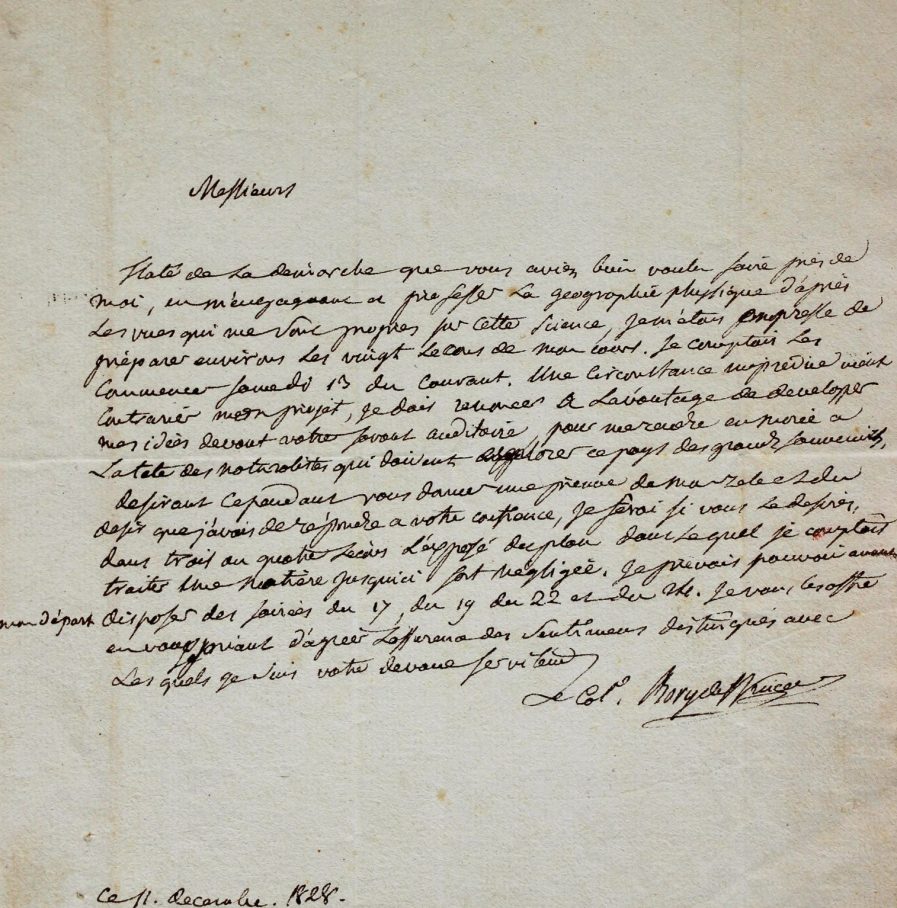 Messieurs
flaté de la demarche que vous aviez bien voulu faire près de
moi, en m'engageant a professer la geographie physique d'après
les vues qui me sont propres sur cette science, je m'étais empressé de
préparer environs les vingt leçons de mon cours. je comptais les
commencer samedi 13 du courant. Une circonstance imprevue vient
contrarier mon projet, je dois renoncer a l'avantage de developper
mes idées devant votre savant auditoire pour me rendre en morée a
la tete des naturalistes qui doivent explorer ce pays des grands souvenirs,
desirant cependant vous donner une preuve de mon zele et du
desir que j'avais de répondre a votre confiance, je ferai si vous le desirés,
dans trois ou quatre leçons l'exposé du plan dans le quel je comptais
traiter une matière jusqu'ici fort negligée. je prevois pouvoir avant
mon départ disposer des soirées du 17, du 19 du 22 et du 24. Je vous les offre
en vous priant d'agréer l'assurance des sentimens distingués avec
les quels je suis votre devoué serviteur
Le Col. Bory de St Vincent
ce 11. decembre. 1828.